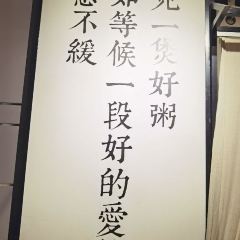 一煲好粥
如等候一段好的愛
不緩